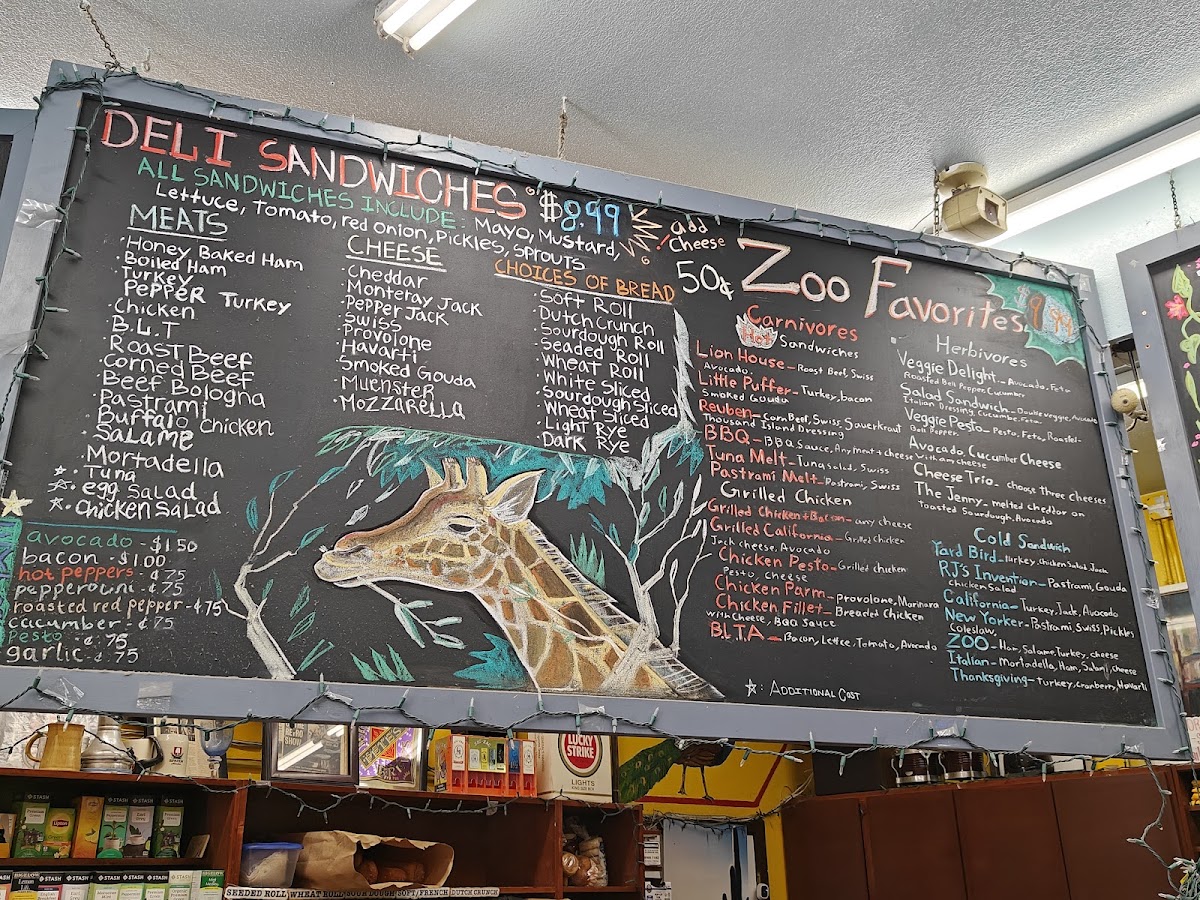 DELI SANDWICHES $8.99
ALL SANDWICHES INCLUDE: Mayo, Mustard,
Lettuce, Tomato, red onion, Pickles, Sprouts
add
cheese
50¢
MEATS
·Honey Baked Ham
·Boiled Ham
·Turkey
·PePPeR Turkey
·Chicken
·B.L.T
·Roast Beef
·Corned Beef
·Beef Bologna
·Pastrami
·Buffalo Chicken
·Salame
·Mortadella
☆·Tuna
☆·egg Salad
☆·Chicken Salad
CHEESE
·Cheddar
·Monteray Jack
·Pepper Jack
·Swiss
·Provolone
·Havarti
·Smoked Gouda
·Muenster
·Mozzarella
CHOICES OF BREAD
·Soft Roll
·Dutch Crunch
·Sourdough Roll
·Seaded Roll
·Wheat Roll
·White Sliced
·Sourdough Sliced
·Wheat Sliced
·Light Rye
·Dark Rye
avocado - $1.50
bacon - $1.00
hot peppers - ¢.75
pepperowni - ¢.75
roasted red pepper - ¢.75
cucumber - ¢.75
Pesto - ¢.75
garlic - ¢.75
Zoo Favorites
Carnivores
Hot Sandwiches
Lion House - Roast Beef, Swiss
Avocado.
Little Puffer - Turkey, bacon
Smoked Gouda
Reuben - Corn Beef, Swiss, Sauerkraut
Thousand Island Dressing
BBQ - BBQ Sauce, Any meat + cheese
Tuna Melt - Tuna Salad, Swiss
Pastrami Melt - Pastrami, Swiss
Grilled Chicken
Grilled Chicken + Bacon - any cheese
Grilled California - Grilled Chicken
Jack cheese, Avocado
Chicken Pesto - Grilled chicken
Pesto, cheese
Chicken Parm - provolone, Marinara
Chicken Fillet - Breaded Chicken
with Cheese, BBQ Sauce
BLTA - Bacon, Lettce, Tomato, Avocado
☆: Additional Cost
Herbivores
Veggie Delight - Avocado, Feta
Roasted Bell Pepper, Cucumber
Salad Sandwich - Double veggie, Avocado
Italian Dressing, Cucumber, Feta
Veggie Pesto - Pesto, Feta, Roasted-
Bell Pepper
Avocado, Cucumber Cheese
with any cheese
Cheese Trio - choose three cheeses
The Jenny - melted cheddar on
Toasted Sourdough, Avocado
Cold Sandwich
Yard Bird - turkey, chicken Salad, Jack
RJ's Invention - Pastrami, Gouda
Chicken Salad
California - Turkey, Jack, Avocado
New Yorker - Pastrami, Swiss, Pickles
Coleslaw
ZOO - Ham, Salame, Turkey, cheese
Italian - Mortadella, Ham, Salami, Cheese
Thanksgiving - turkey, Cranberry, Havarti
LUCKY
STRIKE
LIGHTS
STASH
STASH
STASH
STASH
Lipton
STASH
STASH
STASH
STASH
SEEDED ROLL
WHEAT ROLL
SOURDOUGH
SOFT/FRENCH
DUTCH CRUNCH